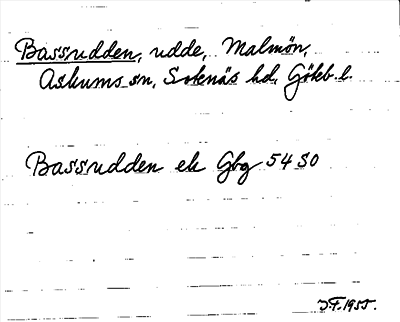 Bassudden, udde, Malmön,
Askums sn, Sotenäs hd, Göteb. l.
Bassudden ek Gbg 54 SO
J.F. 1955.